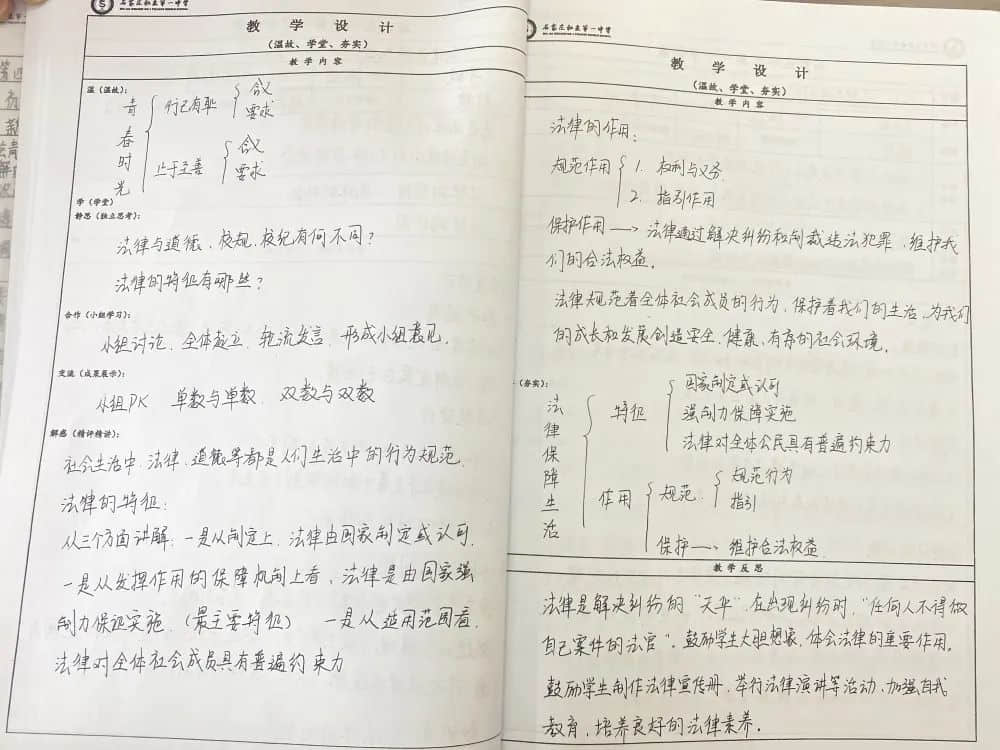 石家庄私立第一中学
教 学 设 计
（温故、学堂、夯实）
教 学 内 容
温（温故）：
青春时光
行己有耻
含义
要求
止于至善
含义
要求
学（学堂）
静思（独立思考）：
法律与道德、校规、校纪有何不同？
法律的特征有哪些？
合作（小组学习）：
小组讨论、全体起立、轮流发言、形成小组意见。
交流（成果展示）：
小组PK 单数与单数、双数与双数
解惑（精评精讲）：
社会生活中，法律、道德等都是人们生活中的行为规范。
法律的特征：
从三个方面讲解：一是从制定上，法律由国家制定或认可，
一是从发挥作用的保障机制上看，法律是由国家强
制力保证实施，（最主要特征） 一是从适用范围看，
法律对全体社会成员具有普遍约束力
第一中学
教 学 设 计
（温故、学堂、夯实）
教 学 内 容
法律的作用：
规范作用
1. 权利与义务
2. 指引作用
保护作用 → 法律通过解决纠纷和制裁违法犯罪，维护我
们的合法权益。
法律规范着全体社会成员的行为，保护着我们的生活，为我们
的成长和发展创造安全、健康、有序的社会环境。
（夯实）：
法律保障生活
特征
国家制定或认可
强制力保障实施
法律对全体公民具有普遍约束力
作用
规范
规范行为
指引
保护 → 维护合法权益
教 学 反 思
法律是解决纠纷的“天平”，在出现纠纷时，“任何人不得做
自己案件的法官”。鼓励学生大胆想象，体会法律的重要作用。
鼓励学生制作法律宣传册，举行法律演讲等活动，加强自我
教育，培养良好的法律素养。